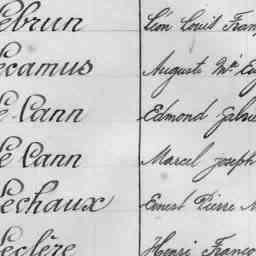 ebrun Léon Louis Fran
ecamus Auguste Mie Eu
Le Cann Edmond Gabri
Le Cann Marcel Joseph
Lechaux Ernest Pierre M
Leclère Henri Franço